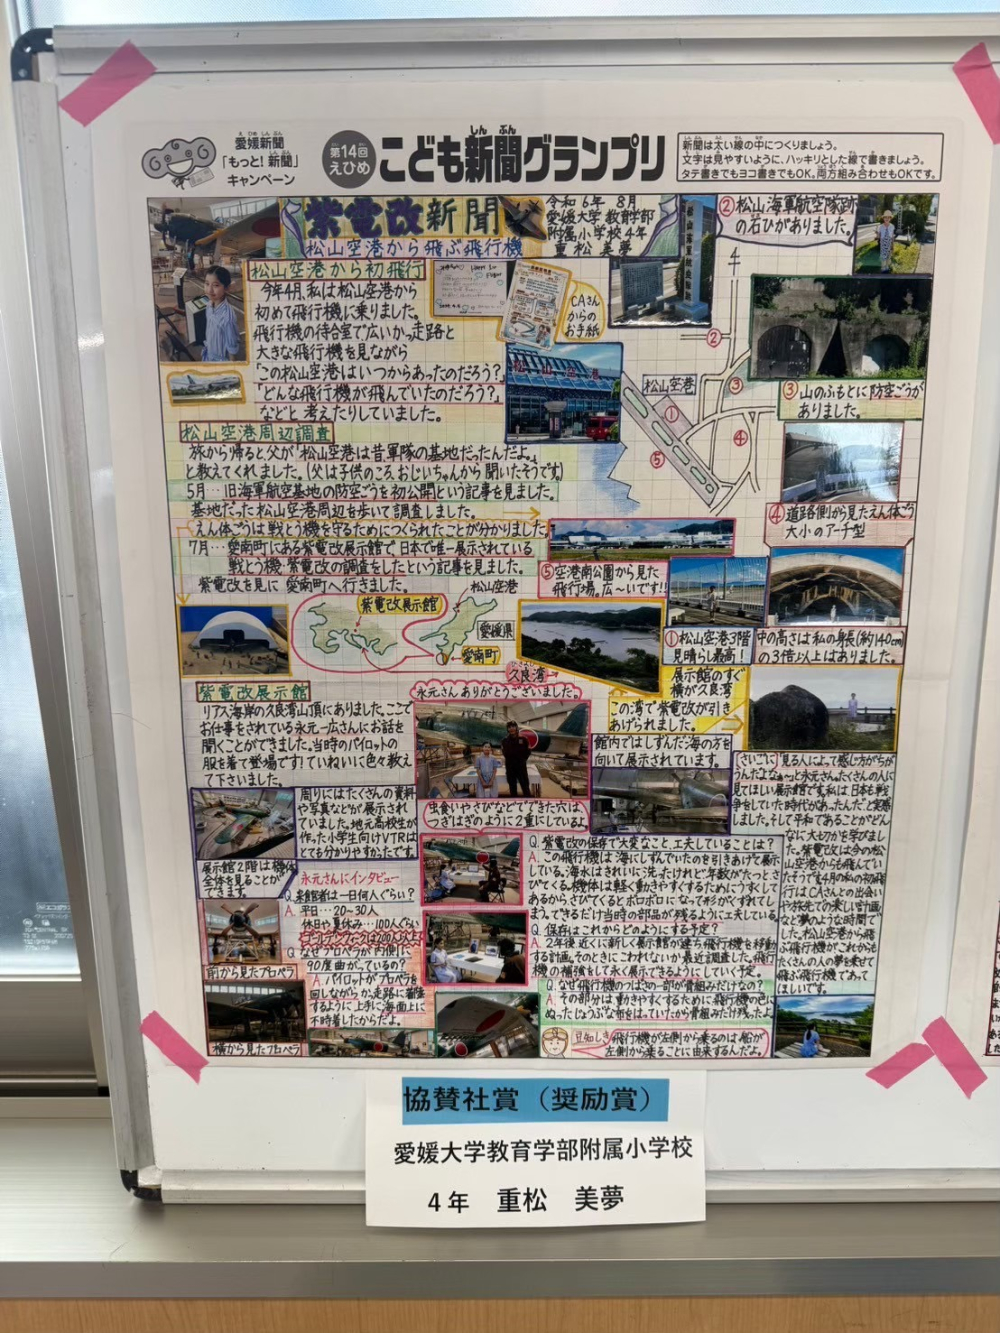 愛媛新聞
「もっと!新聞」
キャンペーン
第14回
えひめ
こども新聞グランプリ
新聞は太い線の中につくりましょう。
文字は見やすいように、ハッキリとした線で書きましょう。
タテ書きでもヨコ書きでもOK。両方組み合わせもOKです。
紫電改新聞
松山空港から飛ぶ飛行機
令和6年8月
愛媛大学教育学部
附属小学校4年
重松美夢
松山空港から初飛行
今年4月、私は松山空港から
初めて飛行機に乗りました。
飛行機の待合室で広いかっ走路と
大きな飛行機を見ながら
「この松山空港はいつからあったのだろう?
「どんな飛行機が飛んでいたのだろう?」
などと考えたりしていました。
CAさん
からの
お手紙
②松山海軍航空隊跡
の石ひがありました。
松山空港
②
③
①
④
⑤
③山のふもとに防空ごうが
ありました。
松山空港周辺調査
旅から帰ると父が「松山空港は昔軍隊の基地だったんだよ。」
と教えてくれました。(父は子供のころ、おじいちゃんから聞いたそうです)
5月…旧海軍航空基地の防空ごうを初公開という記事を見ました。
基地だった松山空港周辺を歩いて調査しました。
えん体ごうは戦とう機を守るためにつくられたことが分かりました。
7月…愛南町にある紫電改展示館で日本で唯一展示されている
戦とう機・紫電改の調査をしたという記事を見ました。
紫電改を見に愛南町へ行きました。
④道路側から見たえん体ごう
大小のアーチ型
⑤空港南公園から見た
飛行場。広〜いです!!
①松山空港3階
見晴らし最高!
中の高さは私の身長(約140cm)
の3倍以上はありました。
紫電改展示館
松山空港
愛媛県
愛南町
久良湾
展示館のすぐ
横が久良湾
この湾で紫電改が引き
あげられました。
紫電改展示館
リアス海岸の久良湾山頂にありました。ここで
お仕事をされている永元一広さんにお話を
聞くことができました。当時のパイロットの
服を着て登場です!ていねいに色々教え
て下さいました。
永元さんありがとうございました。
虫食いやさびなどでできた穴は、
つぎはぎのように2重にしているよ。
館内ではしずんだ海の方を
向いて展示されています。
周りにはたくさんの資料
や写真などが展示され
ていました。地元高校生が
作った小学生向けVTRは
とても分かりやすかったです。
展示館2階は機体
全体を見ることが
できます。
永元さんにインタビュー
Q.来館者は一日何人ぐらい?
A.平日…20〜30人
休日や夏休み…100人ぐらい
ゴールデンウィークは200人以上
Q.なぜプロペラが内側に
90度曲がっているの?
A.パイロットがプロペラを
回しながらかっ走路に着陸
するように上手に海面上に
不時着したからだよ。
前から見たプロペラ
横から見たプロペラ
Q.紫電改の保存で大変なこと、工夫していることは?
A.この飛行機は海にしずんでいたのを引きあげて展示
している。海水はきれいに洗ったけれど年数がたっとさ
びてくる。機体は軽く動きやすくするためにうすくして
あるからさびてくるとボロボロになって形がくずれてし
まう。できるだけ当時の部品が残るように工夫している。
Q.保存はこれからどのようにする予定?
A.2年後近くに新しく展示館が建ち飛行機を移動
する計画。そのときにこわれないか最近調査した。飛行
機の補強をして永く展示できるようにしていく予定。
Q.なぜ飛行機のつばさの一部が骨組みだけなの?
A.その部分は動きやすくするために飛行機の色に
ぬったじょうぶな布をはっていたから骨組みだけ残ったよ。
豆知しき 飛行機が左側から乗るのは船が
左側から乗ることに由来するんだよ。
さいごに「見る人によって感じ方がちが
うんだよなぁ〜」と永元さん。たくさんの人に
見てほしい展示館です。私は日本も戦
争をしていた時代があったんだと実感
しました。そして平和であることがどん
なに大切かを学びまし
た。紫電改は今の松
山空港からも飛んでい
たそうです。4月の私の初飛
行はCAさんとの出会い
や旅先での楽しい計画
など夢のような時間で
した。松山空港から飛
ぶ飛行機がこれからも
たくさんの人の夢を乗せて
飛ぶ飛行機であって
ほしいです。
協賛社賞(奨励賞)
愛媛大学教育学部附属小学校
4年 重松 美夢